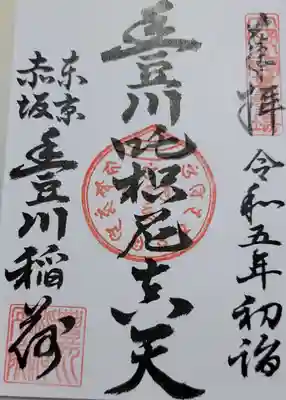 拝
令和五年 初詣
豊川吒枳尼真天
東京
赤坂
豊川稲荷